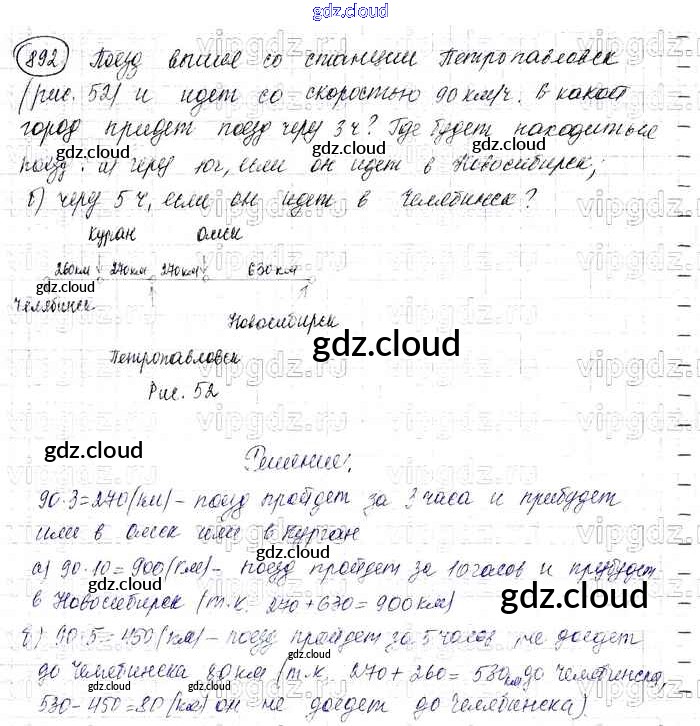 gdz.cloud
892 Поезд вышел со станции Петропавловск
(рис. 52) и идет со скоростью 90 км/ч. в какой
город придет поезд через 3ч? Где будет находиться
поезд: а) через 10г, если он идет в Новосибирск;
б) через 5 ч, если он идет в Челябинск?
Курган Омск
260км 270км 270км 630 км
Челябинск
Новосибирск
Петропавловск
Рис. 52
gdz.cloud
gdz.cloud
Решение:
90·3=270(км)- поезд пройдет за 3 часа и прибудет
или в Омск или в Курган
а) 90·10=900(км)- поезд пройдет за 10 часов и прибудет
в Новосибирск (т.к. 270+630=900км)
б) 90·5=450(км)- поезд пройдет за 5 часов не доедет
до Челябинска 80км (т.к. 270+260=530км до Челябинска,
530-450=80(км) он не доедет до Челябинска)